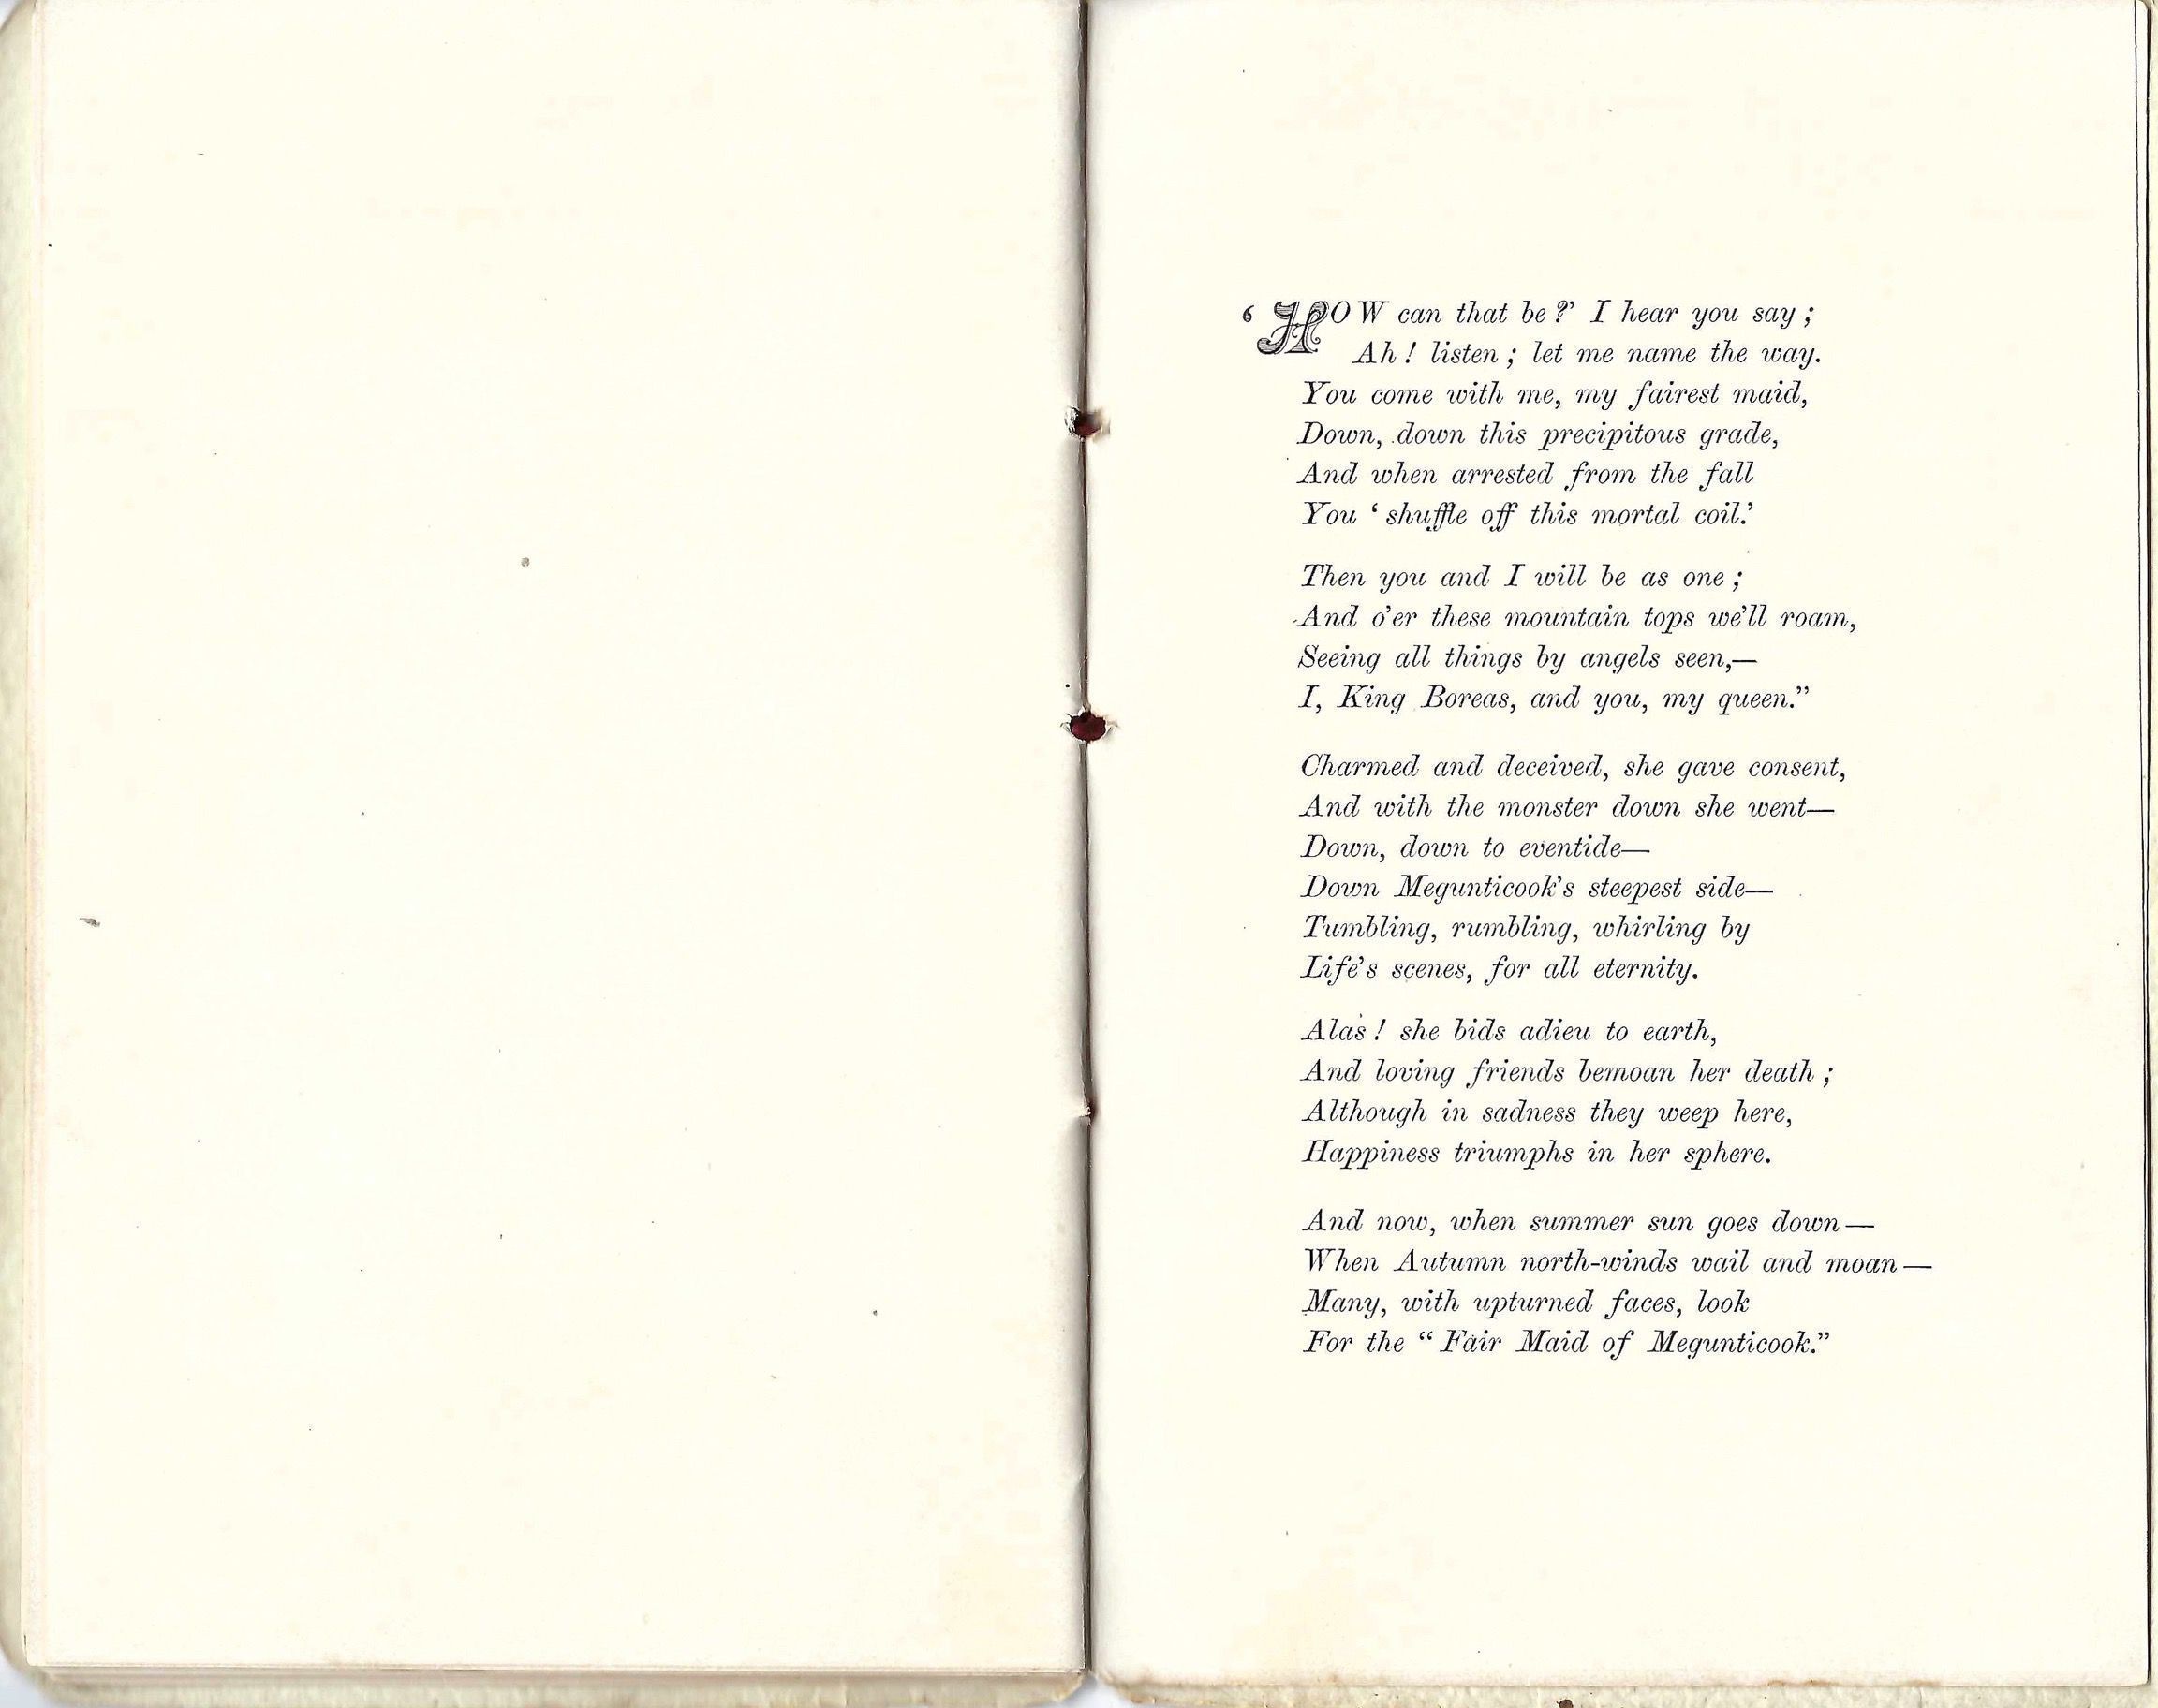 ‘ HOW can that be?’ I hear you say;
Ah! listen; let me name the way.
You come with me, my fairest maid,
Down, down this precipitous grade,
And when arrested from the fall
You ‘shuffle off this mortal coil.’
Then you and I will be as one;
And o’er these mountain tops we’ll roam,
Seeing all things by angels seen,—
I, King Boreas, and you, my queen.”
Charmed and deceived, she gave consent,
And with the monster down she went—
Down, down to eventide—
Down Megunticook’s steepest side—
Tumbling, rumbling, whirling by
Life’s scenes, for all eternity.
Alas! she bids adieu to earth,
And loving friends bemoan her death;
Although in sadness they weep here,
Happiness triumphs in her sphere.
And now, when summer sun goes down—
When Autumn north-winds wail and moan—
Many, with upturned faces, look
For the “Fair Maid of Megunticook.”